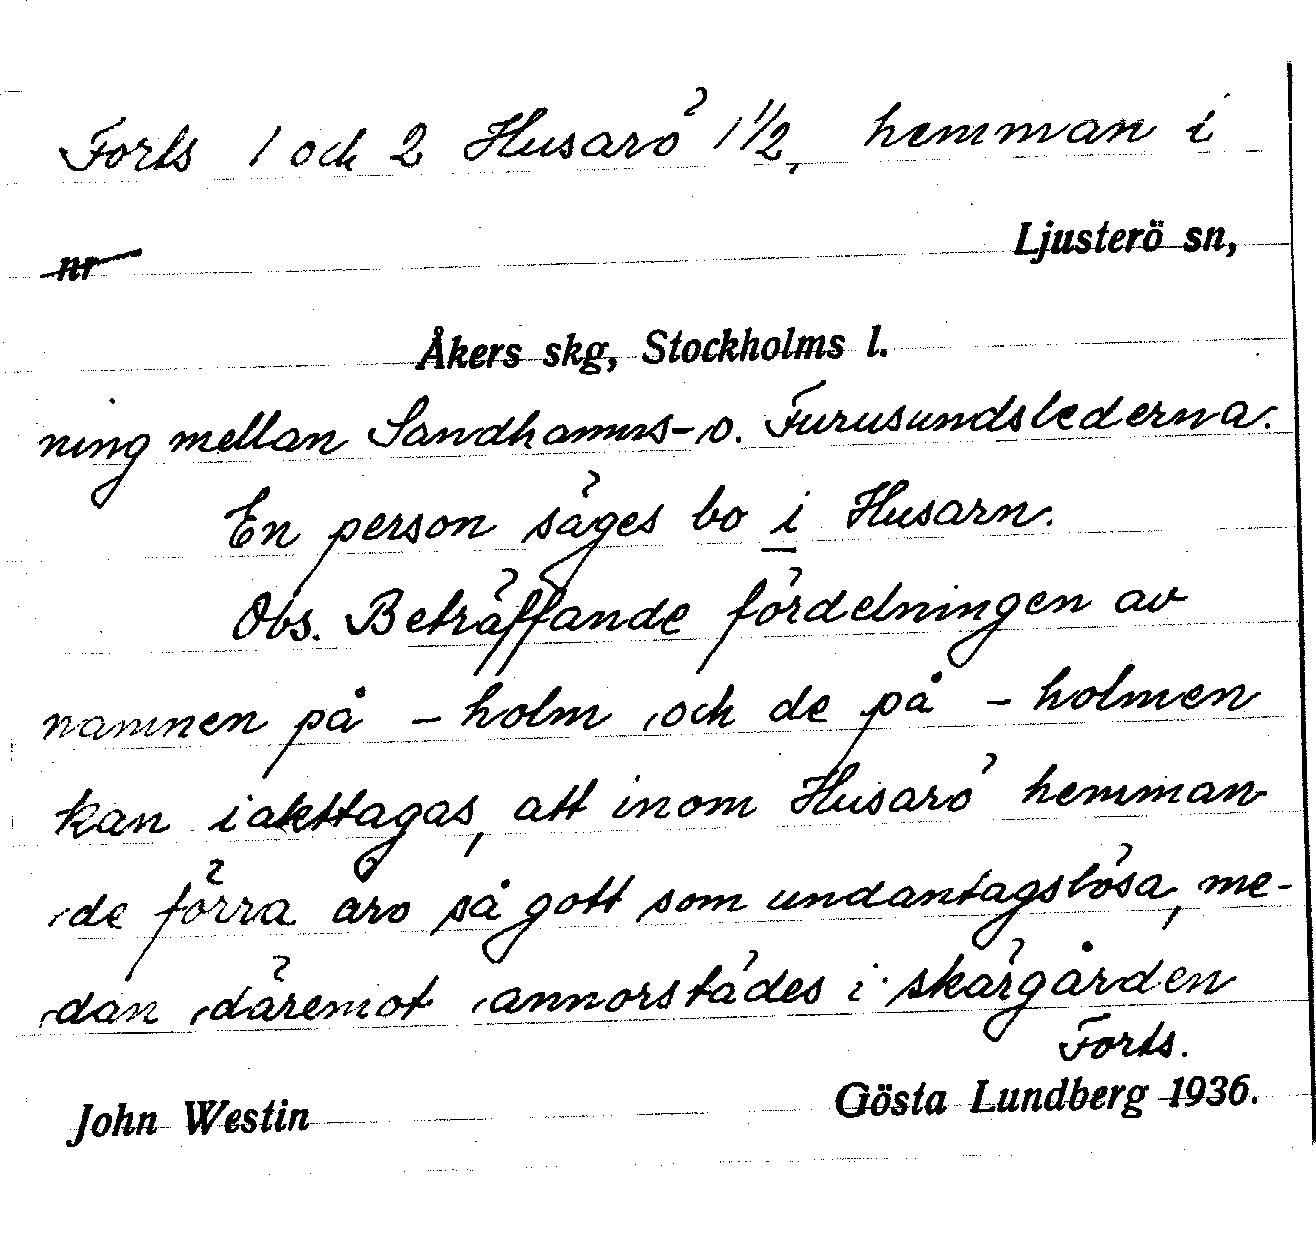 Forts 1 och 2 Husarö 1 1/2, hemman i
Ljusterö sn,
nr
Åkers skg, Stockholms l.
ning mellan Sandhamns- o. Furusundslederna.
En person säges bo i Husarn.
Obs. Beträffande fördelningen av
namnen på - holm och de på - holmen
kan iakttagas, att inom Husarö hemman
de förra äro så gott som undantagslösa, me-
dan däremot annorstädes i skärgården
Forts.
John Westin Gösta Lundberg 1936.